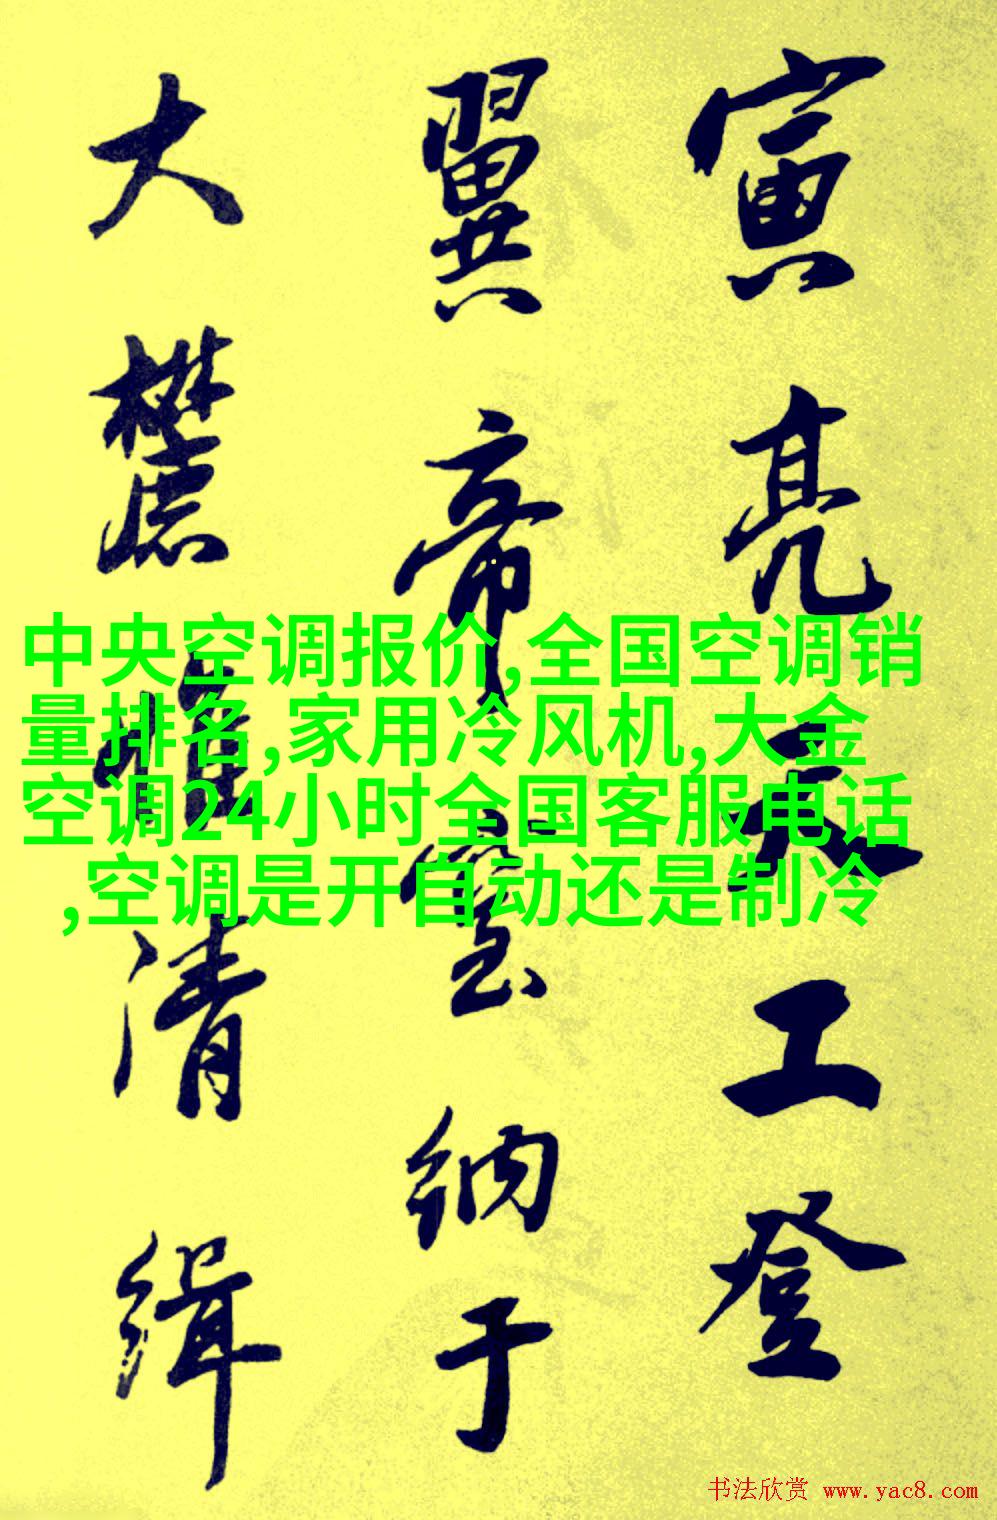 寅亮天工登
翼帝室纳于
大麓惟清缉
中央空调报价,全国空调销
量排名,家用冷风机,大金
空调24小时全国客服电话
,空调是开自动还是制冷
书法欣赏 www.yac8.com